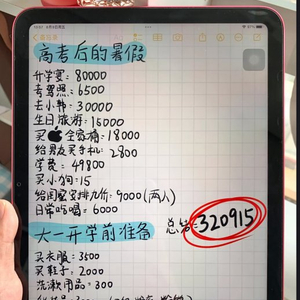 高考后的暑假
升学宴：80000
考驾照：6500
去小韩：30000
生日旅游：15000
买全家桶：18000
给男友买手机：2800
学费：49800
买小狗：15
给闺蜜安排几位：9000（两人）
日常吃喝：6000
总价：320915
大一开学前准备
买衣服：3500
买鞋子：2000
洗漱用品：300